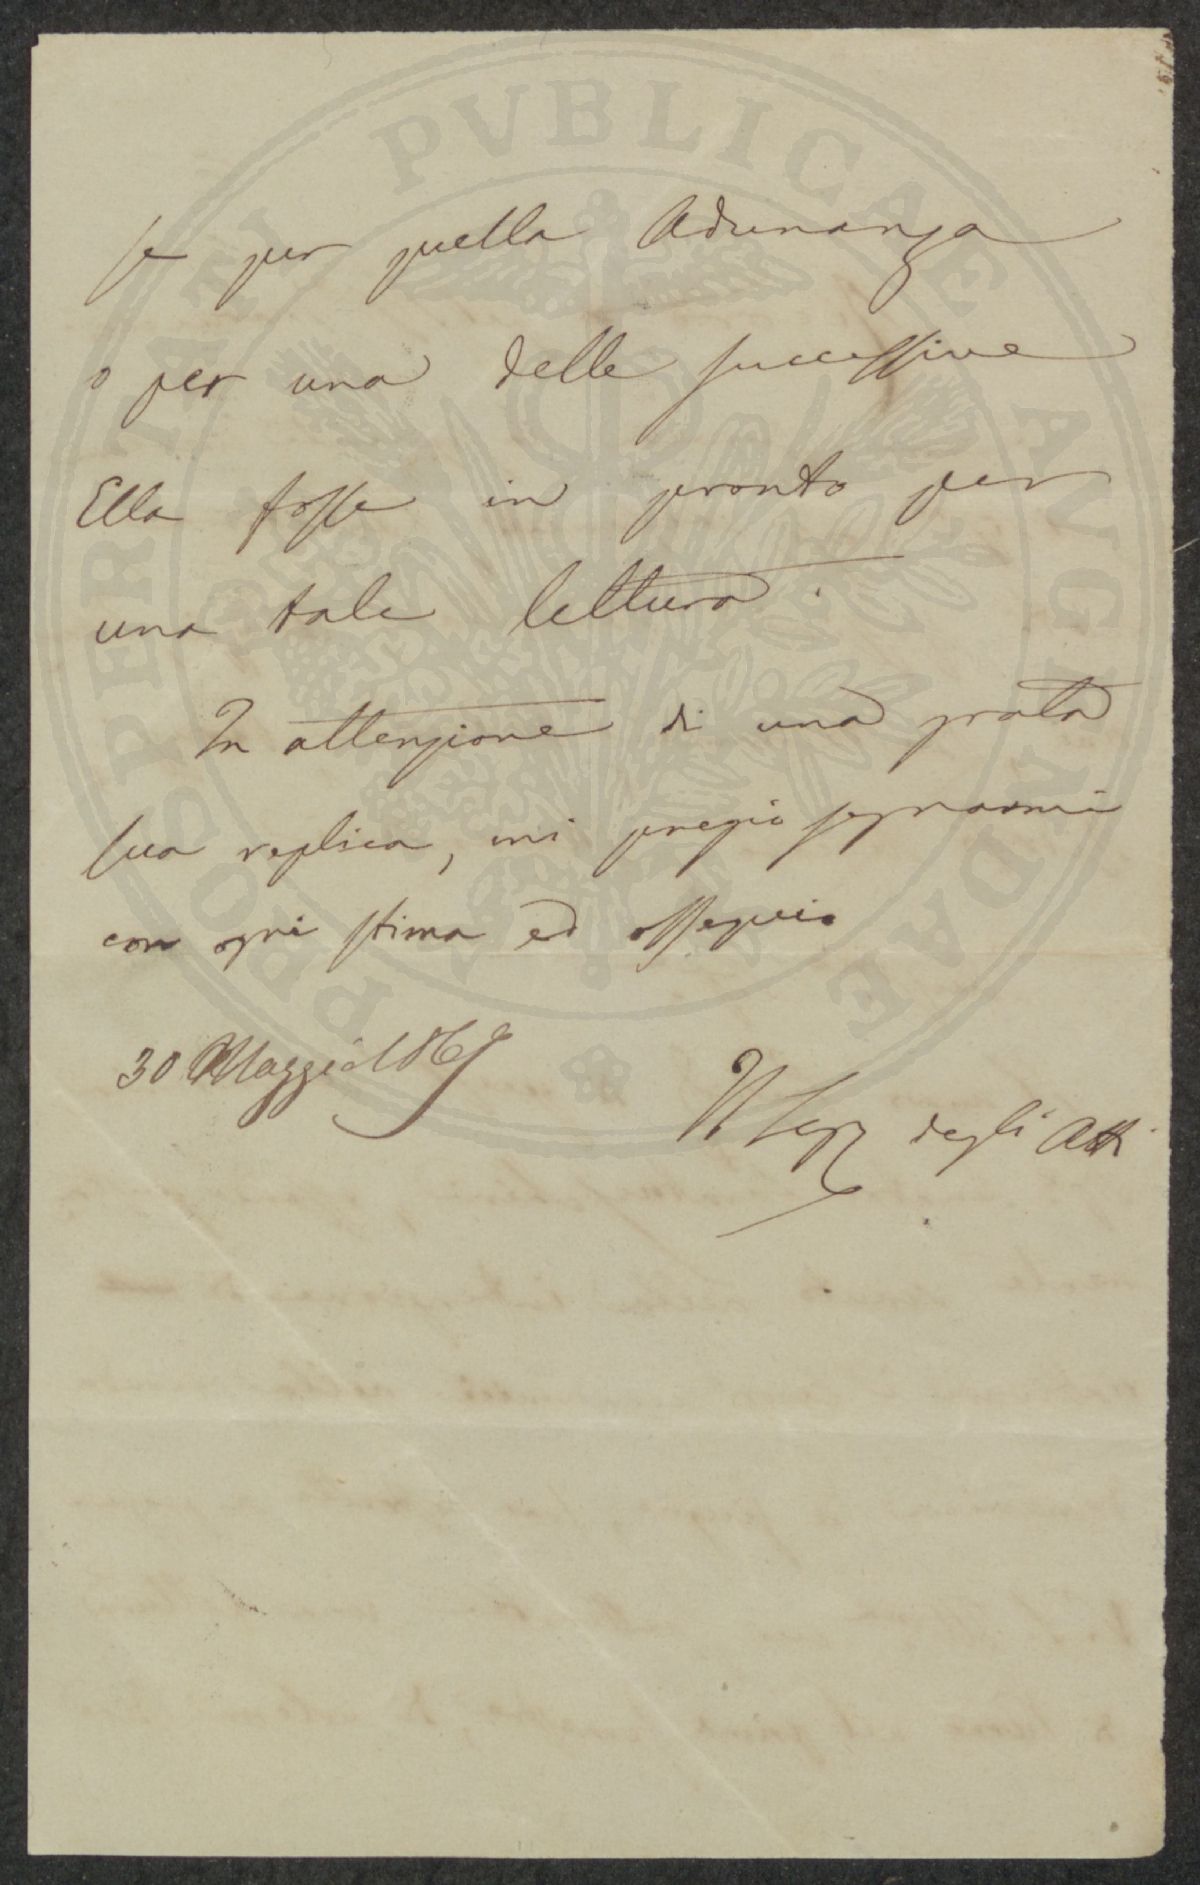 se per quella Adunanza
o per una delle successive
Ella fosse in pronto per
una tale lettura.
In attenzione di una grata
sua replica, mi pregio segnarmi
con ogni stima ed ossequio
30 Maggio 1869
Il Seg. degli Atti
PROSPERITATI PVBLICAE AVGENDAE